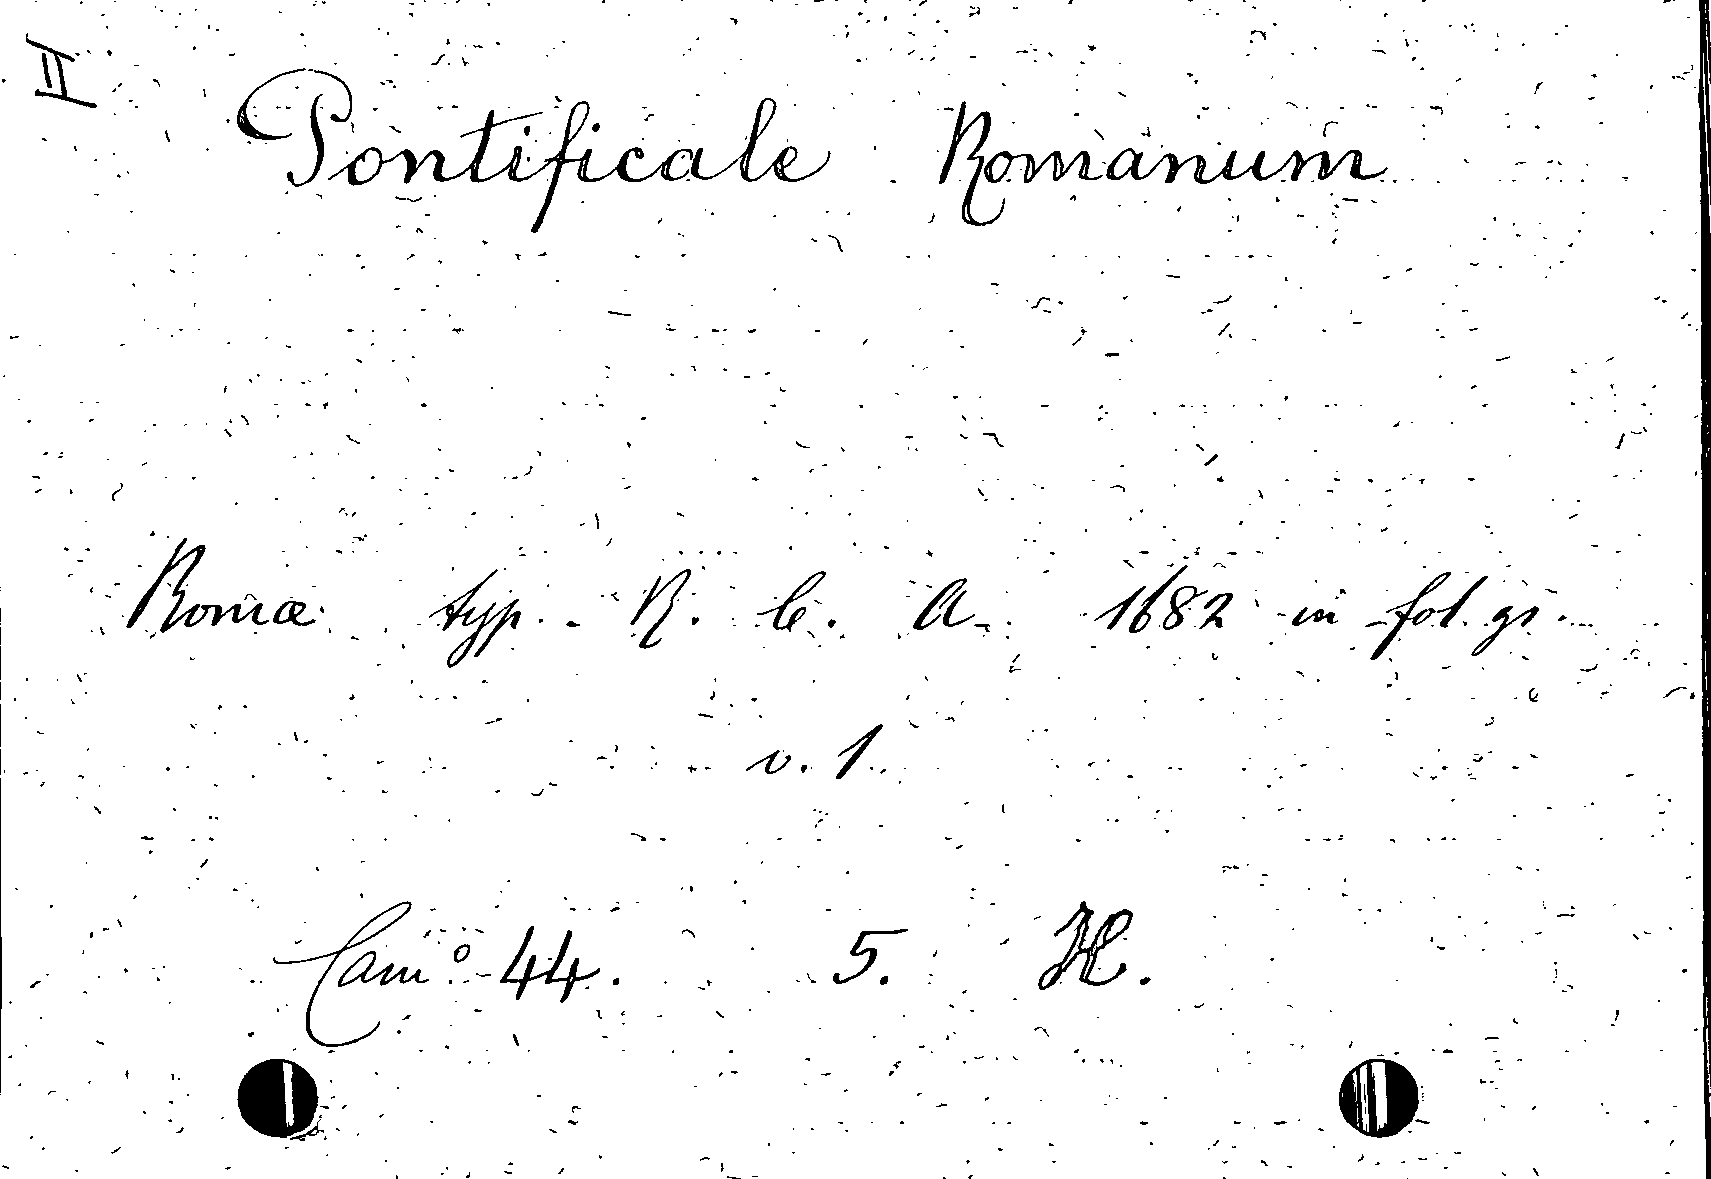 II
Pontificale Romanum
Romæ typ. R. C. A. 1682 in fol. gr.
v. 1
Cam° 44. 5. H.